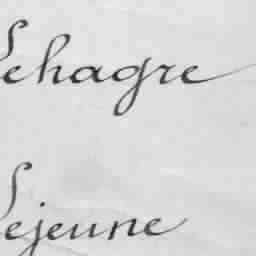 Lehagre
Lejeune